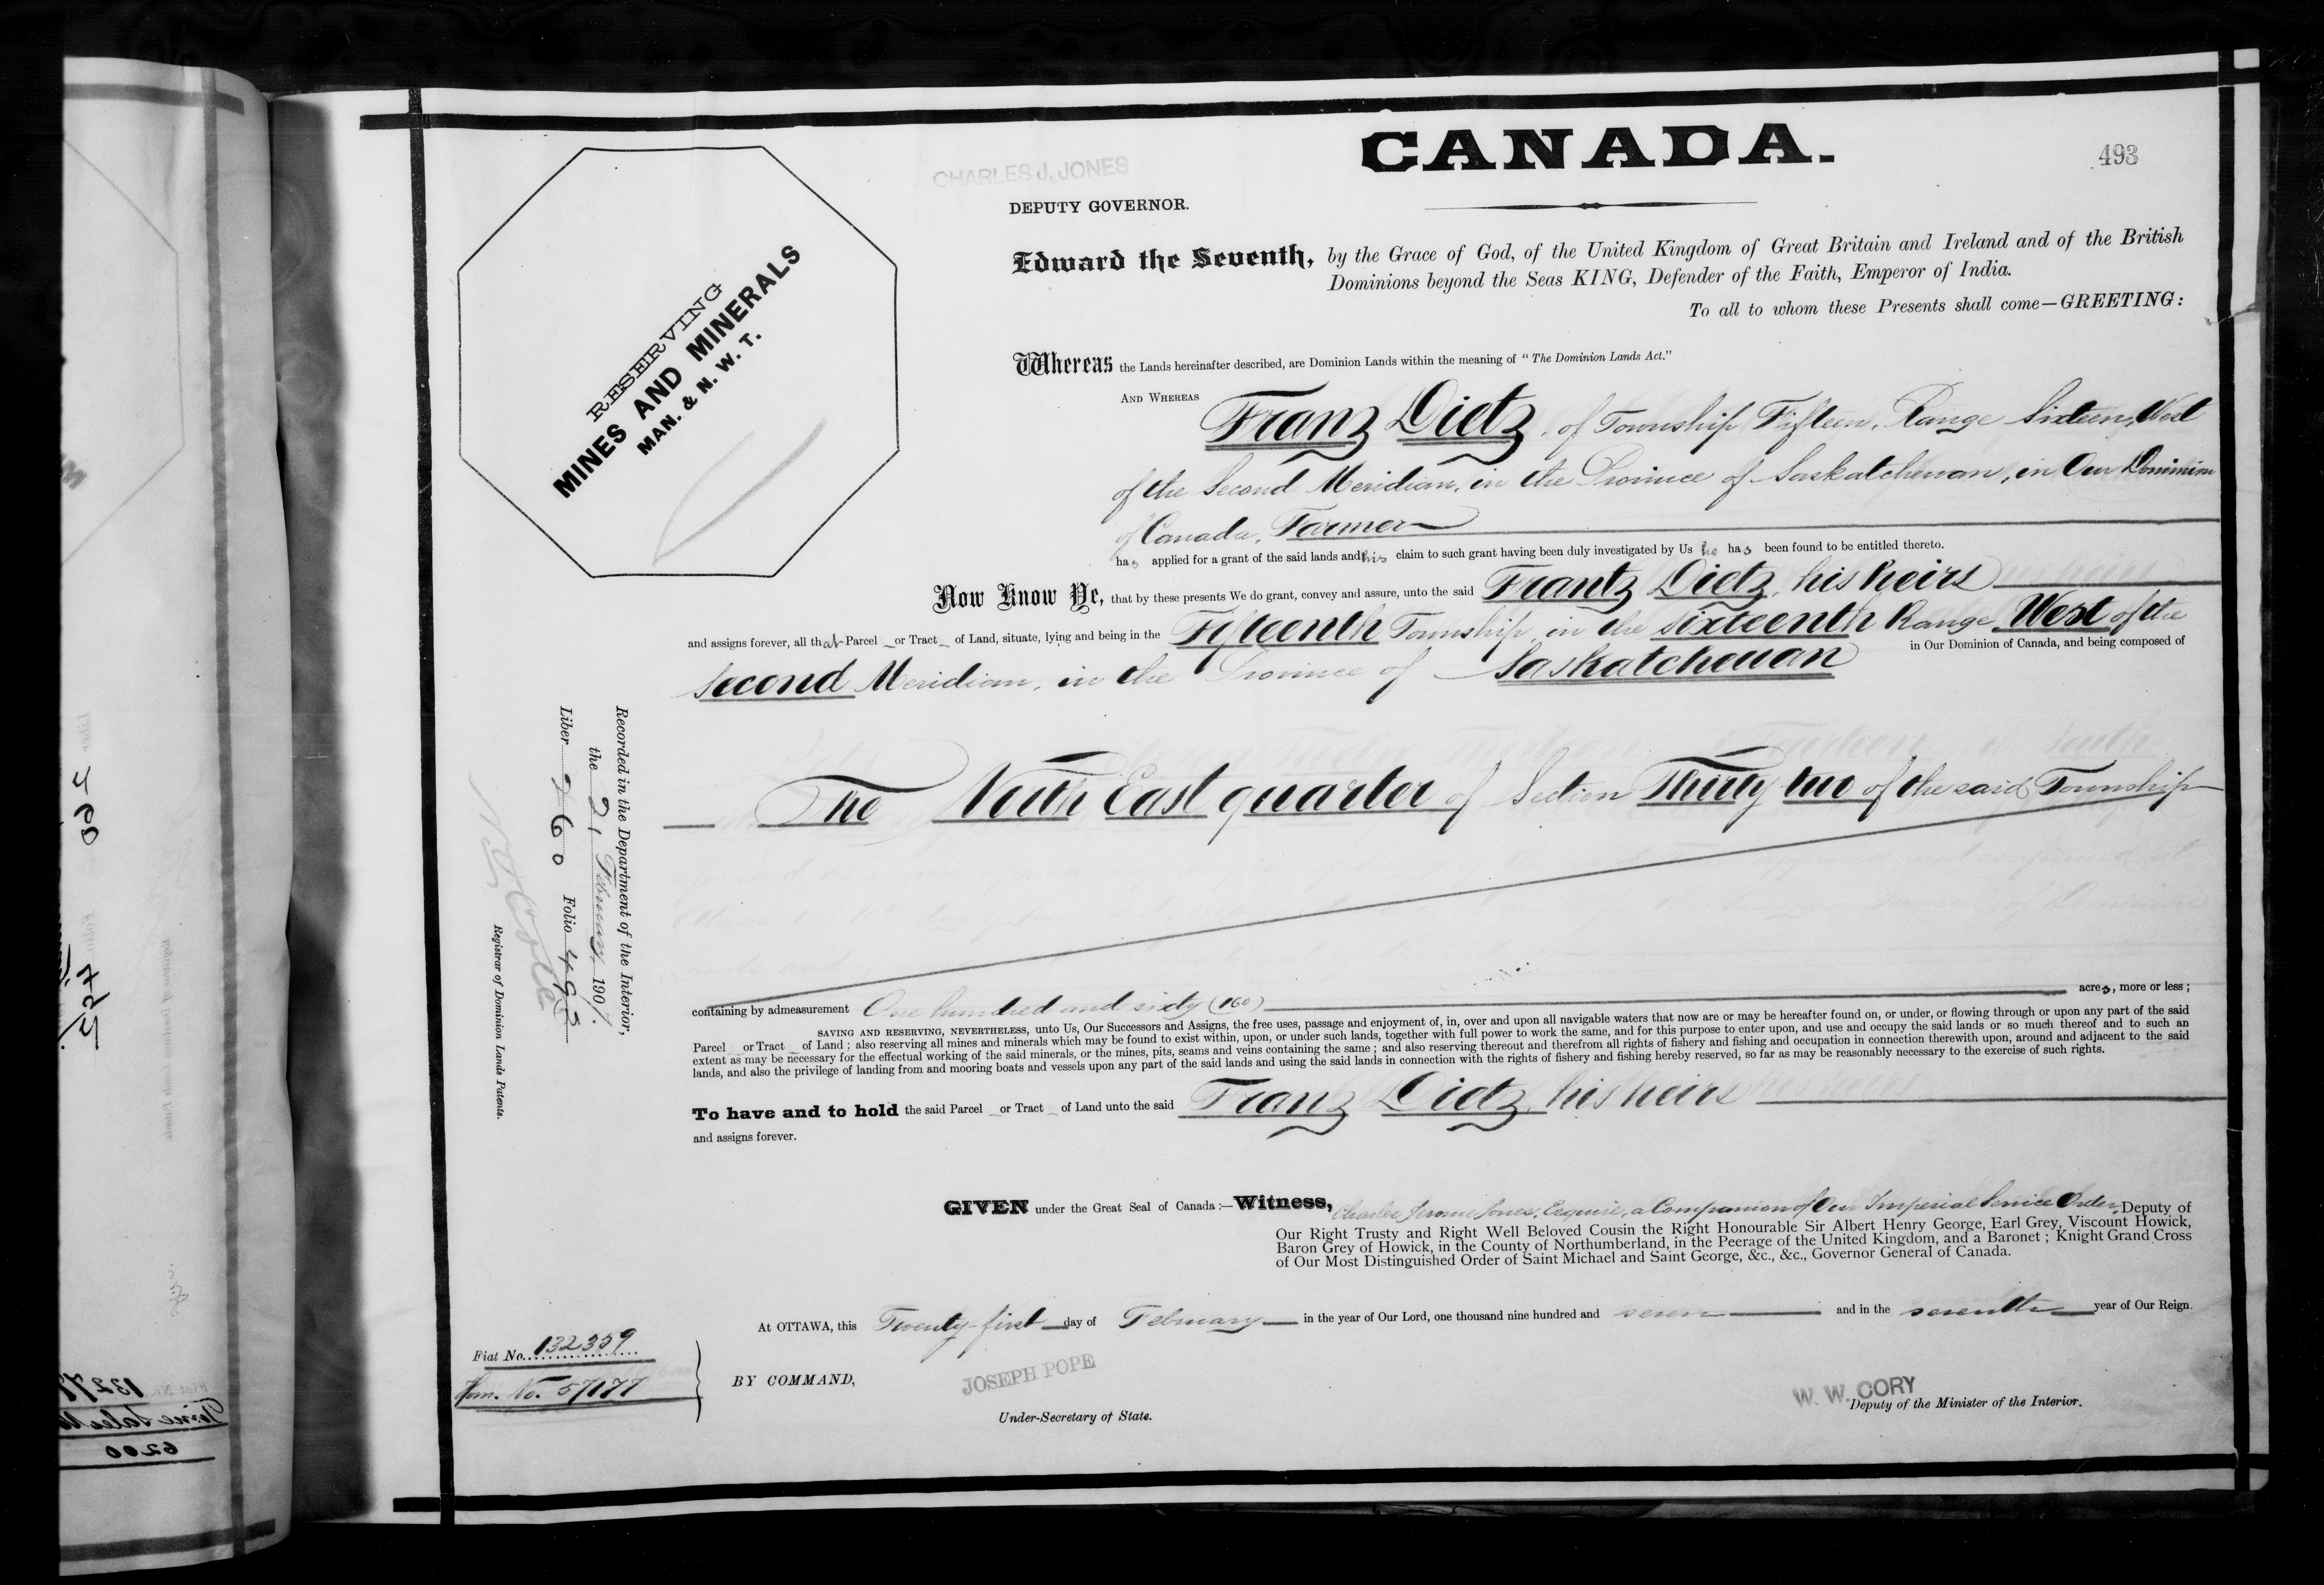 CANADA.
493
CHARLES J. JONES
DEPUTY GOVERNOR.
RESERVING
MINES AND MINERALS
MAN. & N. W. T.
Edward the Seventh, by the Grace of God, of the United Kingdom of Great Britain and Ireland and of the British
Dominions beyond the Seas KING, Defender of the Faith, Emperor of India.
To all to whom these Presents shall come—GREETING:
Whereas the Lands hereinafter described, are Dominion Lands within the meaning of "The Dominion Lands Act."
AND WHEREAS Franz Dietz, of Township Fifteen, Range Sixteen, West
of the Second Meridian, in the Province of Saskatchewan, in Our Dominion
of Canada, Farmer
has applied for a grant of the said lands and his claim to such grant having been duly investigated by Us he has been found to be entitled thereto.
Now Know Ye, that by these presents We do grant, convey and assure, unto the said Frantz Dietz, his heirs
and assigns forever, all that Parcel or Tract of Land, situate, lying and being in the Fifteenth Township, in the sixteenth Range West of the
second Meridian, in the Province of Saskatchewan in Our Dominion of Canada, and being composed of
The North East quarter of Section Thirty two of the said Township
containing by admeasurement One hundred and sixty (160) acres, more or less;
SAVING AND RESERVING, NEVERTHELESS, unto Us, Our Successors and Assigns, the free uses, passage and enjoyment of, in, over and upon all navigable waters that now are or may be hereafter found on, or under, or flowing through or upon any part of the said
Parcel or Tract of Land; also reserving all mines and minerals which may be found to exist within, upon, or under such lands, together with full power to work the same, and for this purpose to enter upon, and use and occupy the said lands or so much thereof and to such an
extent as may be necessary for the effectual working of the said minerals, or the mines, pits, seams and veins containing the same; and also reserving thereout and therefrom all rights of fishery and fishing and occupation in connection therewith upon, around and adjacent to the said
lands, and also the privilege of landing from and mooring boats and vessels upon any part of the said lands and using the said lands in connection with the rights of fishery and fishing hereby reserved, so far as may be reasonably necessary to the exercise of such rights.
To have and to hold the said Parcel or Tract of Land unto the said Franz Dietz, his heirs
and assigns forever.
Recorded in the Department of the Interior,
the 21 February 1907.
Liber 260 Folio 493
Registrar of Dominion Lands Patents.
GIVEN under the Great Seal of Canada:—Witness, Charles Jerome Jones, Esquire, a Companion of Our Imperial Service Order, Deputy of
Our Right Trusty and Right Well Beloved Cousin the Right Honourable Sir Albert Henry George, Earl Grey, Viscount Howick,
Baron Grey of Howick, in the County of Northumberland, in the Peerage of the United Kingdom, and a Baronet; Knight Grand Cross
of Our Most Distinguished Order of Saint Michael and Saint George, &c., &c., Governor General of Canada.
At OTTAWA, this Twenty-first day of February in the year of Our Lord, one thousand nine hundred and seven and in the seventh year of Our Reign.
Fiat No. 132359
Hom. No. 57177
BY COMMAND,
JOSEPH POPE
Under-Secretary of State.
W. W. CORY
Deputy of the Minister of the Interior.